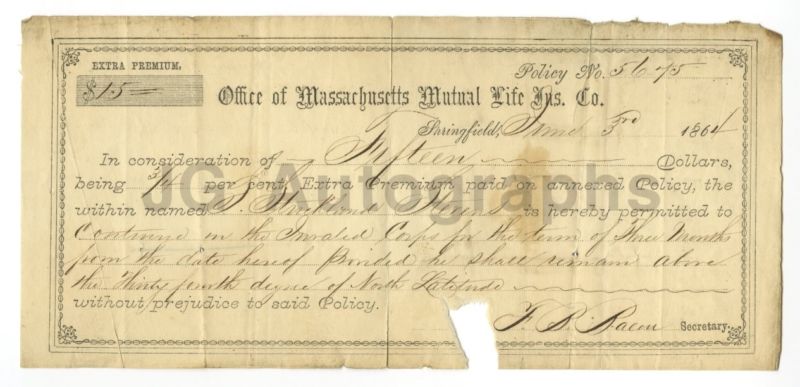 EXTRA PREMIUM,
$15=
Policy No. 5675
Office of Massachusetts Mutual Life Ins. Co.
Springfield, June 3rd 1864
In consideration of Fifteen Dollars,
being 3/4 per cent, Extra Premium paid on annexed Policy, the
within named S. Strickland Stevens is hereby permitted to
Continue in the Invalid Corps for the term of three months
from the date hereof Provided he shall remain above
the Thirty fourth degree of North Latitude
without prejudice to said Policy.
F. B. Bacon Secretary.
JG Autographs